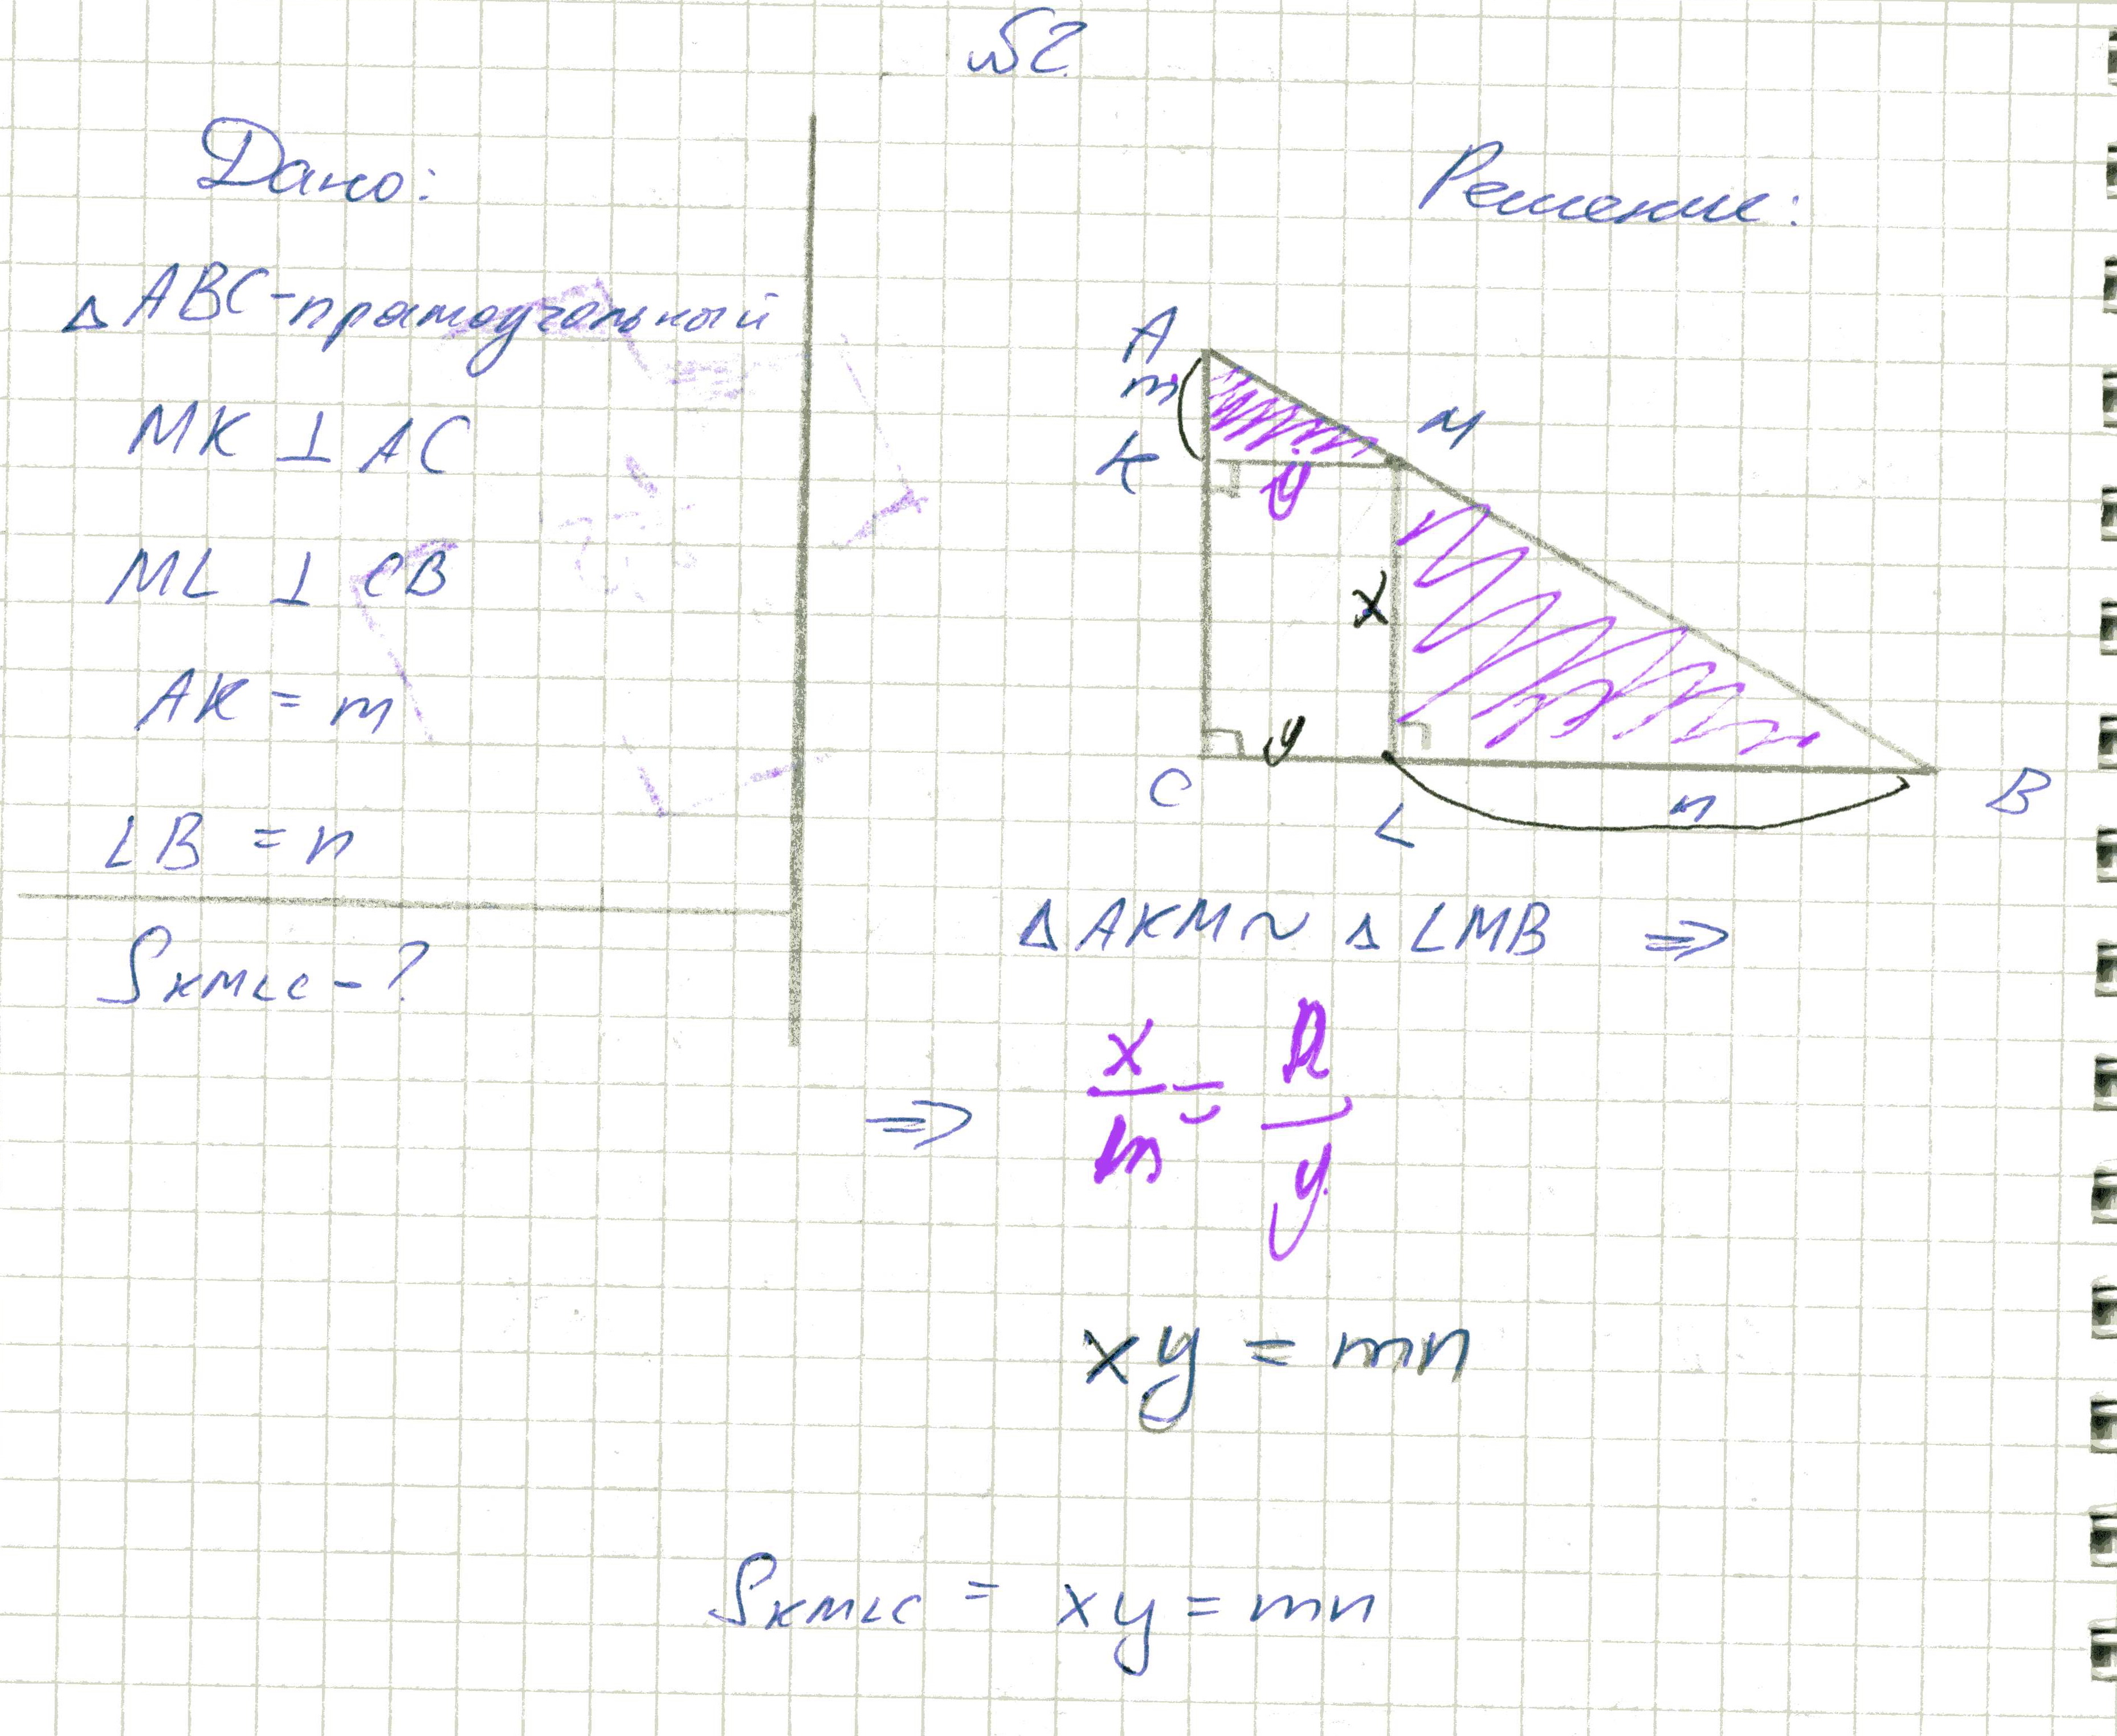 №2
Дано:
△ABC-прямоугольный
MK ⊥ AC
ML ⊥ CB
AK = m
LB = n
S KMLC - ?
Решение:
A
m
K
M
y
x
y
C
L
n
B
△AKM ~ △LMB ⇒
⇒ x/m = n/y
xy = mn
S KMLC = xy = mn